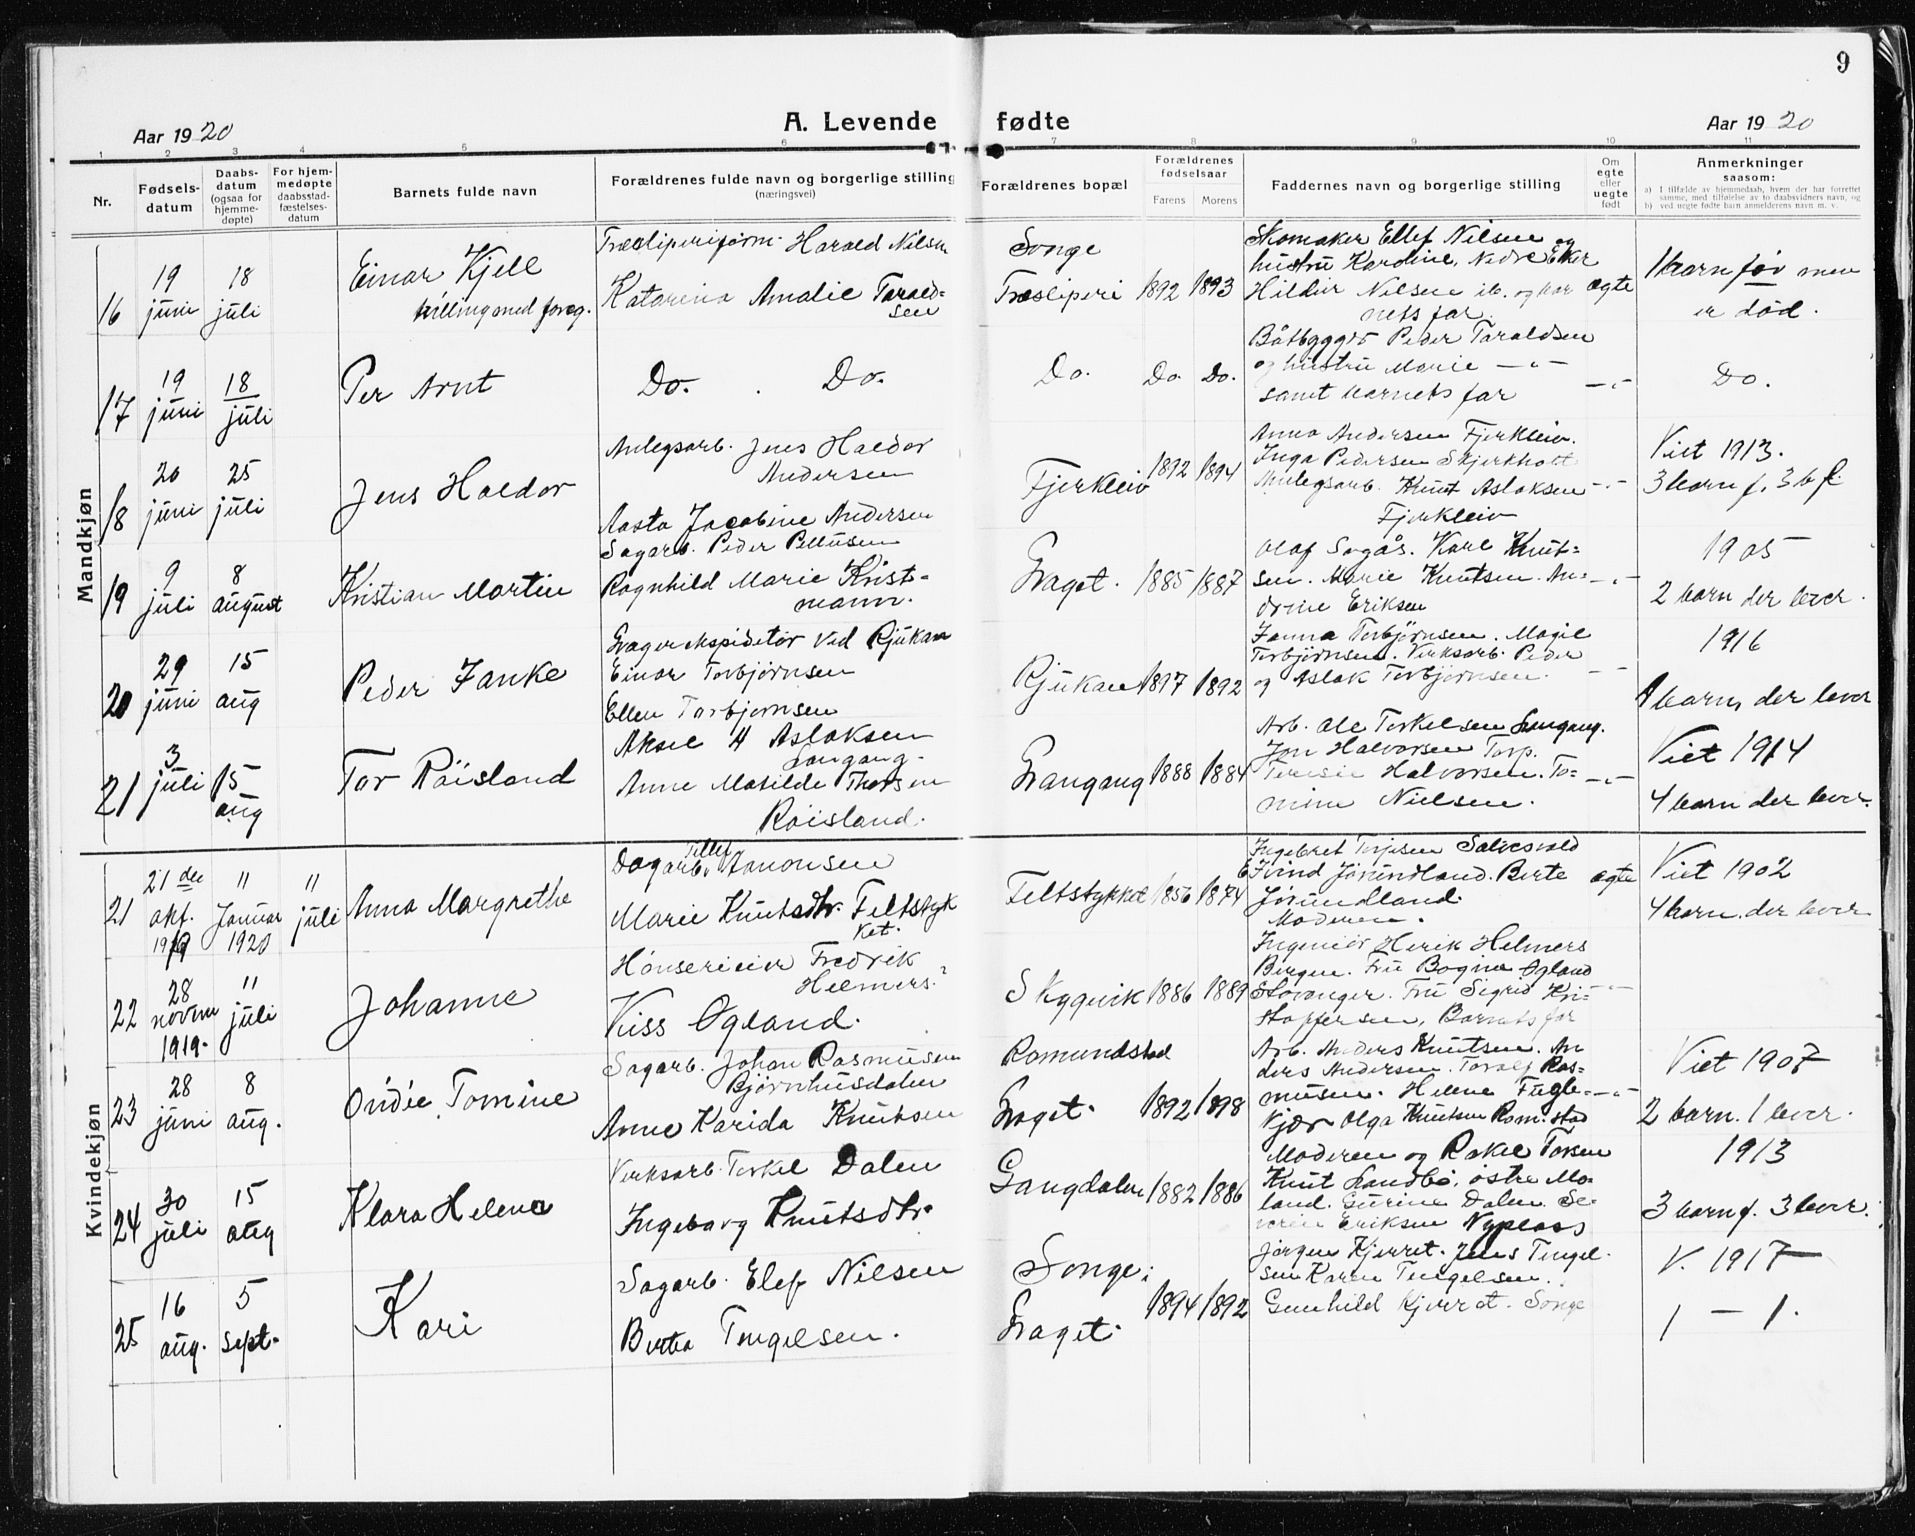 9
Aar 1920
A. Levende fødte
Aar 1920
1 2 3 4 5 6 7 8 9 10 11
Nr.
Fødsels-
datum
Daabs-
datum
(ogsaa for
hjemme-
døpte)
For hjem-
medøpte
daabsstad-
fæstelses-
datum
Barnets fulde navn
Forældrenes fulde navn og borgerlige stilling
(næringsvei)
Forældrenes bopæl
Forældrenes
fødselsaar
Farens Morens
Faddernes navn og borgerlige stilling
Om
egte
eller
uegte
født
Anmerkninger
saasom:
a) I tilfælde av hjemmedaab, hvem der har forrettet
samme, med tilføielse av to daabsvidners navn, og
b) ved uegte fødte barn anmelderens navn m. v.
Mandkjøn
16
19
juni
18
juli
Einar Kjell
tvilling med foreg.
Træsliperiform. Harald Nilsen
Katarina Amalie Tarald=
sen
Songe
Træsliperi
1892 1893
Skomaker Ellef Nilsen og
hustru Karoline, Nedre Eker
Hildur Nilsen ib. og bar
nets far.
egte
1 barn før men
er død.
17
19
juni
18
juli
Per Arnt
Do. Do.
Do. Do. Do.
Båtbygger Peder Taraldsen
og hustru Marie — " —
samt barnets far
— " —
Do.
18
20
juni
25
juli
Jens Haldor
Anlegsarb. Jens Haldor
Andersen
Aasta Jacobine Andersen
Fjerkleiv
1892 1894
Anna Andersen Fjerkleiv.
Inga Pedersen Skjerkholt
Anlegsarb. Knut Aslaksen
Fjerkleiv
— " —
Viet 1913.
3 barn f. 3 b f.
19
9
juli
8
august
Kristian Martin
Sagarb. Peder Pellusen
Ragnhild Marie Krist=
mann.
Fraget.
1885 1887
Olaf Sagås. Karl Knut=
sen. Marie Knutsen. An=
drine Eriksen
— " —
1905
2 barn der lever.
20
29
juni
15
aug
Peder Janke
ved Rjukan
Einar Torbjørnsen
Ellen Torbjørnsen
Rjukan
1897 1892
Janna Torbjørnsen. Magil
Torbjørnsen. Verksarb. Peder
og Aslak Torbjørnsen.
1916
1 barn, der lever
21
3
juli
15
aug
Tor Röisland
Aksel H Aslaksen
Langang.
Anne Matilde Thorsen
Röisland.
Grangang
1888 1884
Arb. Ole Torkelsen Langang.
Jon Halvorsen Torp.
Teresie Halvorsen. To=
mine Nielsen.
— " —
Viet 1914
4 barn der lever.
Kvindekjøn
21
21 de
okt.
1919
"
Januar
1920
"
juli
Anna Margrethe
Dagarb. Tellef Amonsen
Marie Knutsdtr. Feltstyk
ket.
Feltstykket
1856 1874
Ingebret Torjesen Salvesvold
Eivind Jørundland. Berte
Jørundland.
Moderen.
egte
Viet 1902
4 barn. der lever
22
28
novem
1919.
"
juli
Johanne
Hönserieier Fredrik
Helmers.
Kiss Øgland.
Skyggvik
1886 1889
Ingeniör Henrik Helmers
Bergen. Fru Bogine Øgland
Stavanger. Fru Sigrid Kri=
stoffersen, Barnets far
23
28
juni
8
aug.
Ovidie Tomine
Sagarb. Johan Rasmusen
Bjørnhusdalen
Anne Karida Knutsen
Romundstad
Fraget.
1892 1898
Arb. Anders Knutsen. An
ders Andersen. Toralf Ras=
musen. Helene Fugle=
kjær Olga Knutsen Rom.stad
— " —
Viet 1907
2 barn. 1 lever.
24
30
juli
15
aug
Klara Helene
Verksarb. Torkel Dalen
Ingeborg Knutsdtr.
Gangdalen
1882 1886
Moderen og Rakel Token
Knut Landbö, östre Mo=
land. Gurine Dalen. Se
veren Eriksen Nyplass
1913
3 barn f. 3 lever.
25
16
aug.
5
sept.
Kari
Sagarb. Elef Nilsen
Berta Tengelsen.
Songe;
Fraget.
1894 1892
Jørgen Kjerret. Jens Tengel
sen Karen Tengelsen.
Gunhild Kjerret. Songe
V. 1917
1 — 1.